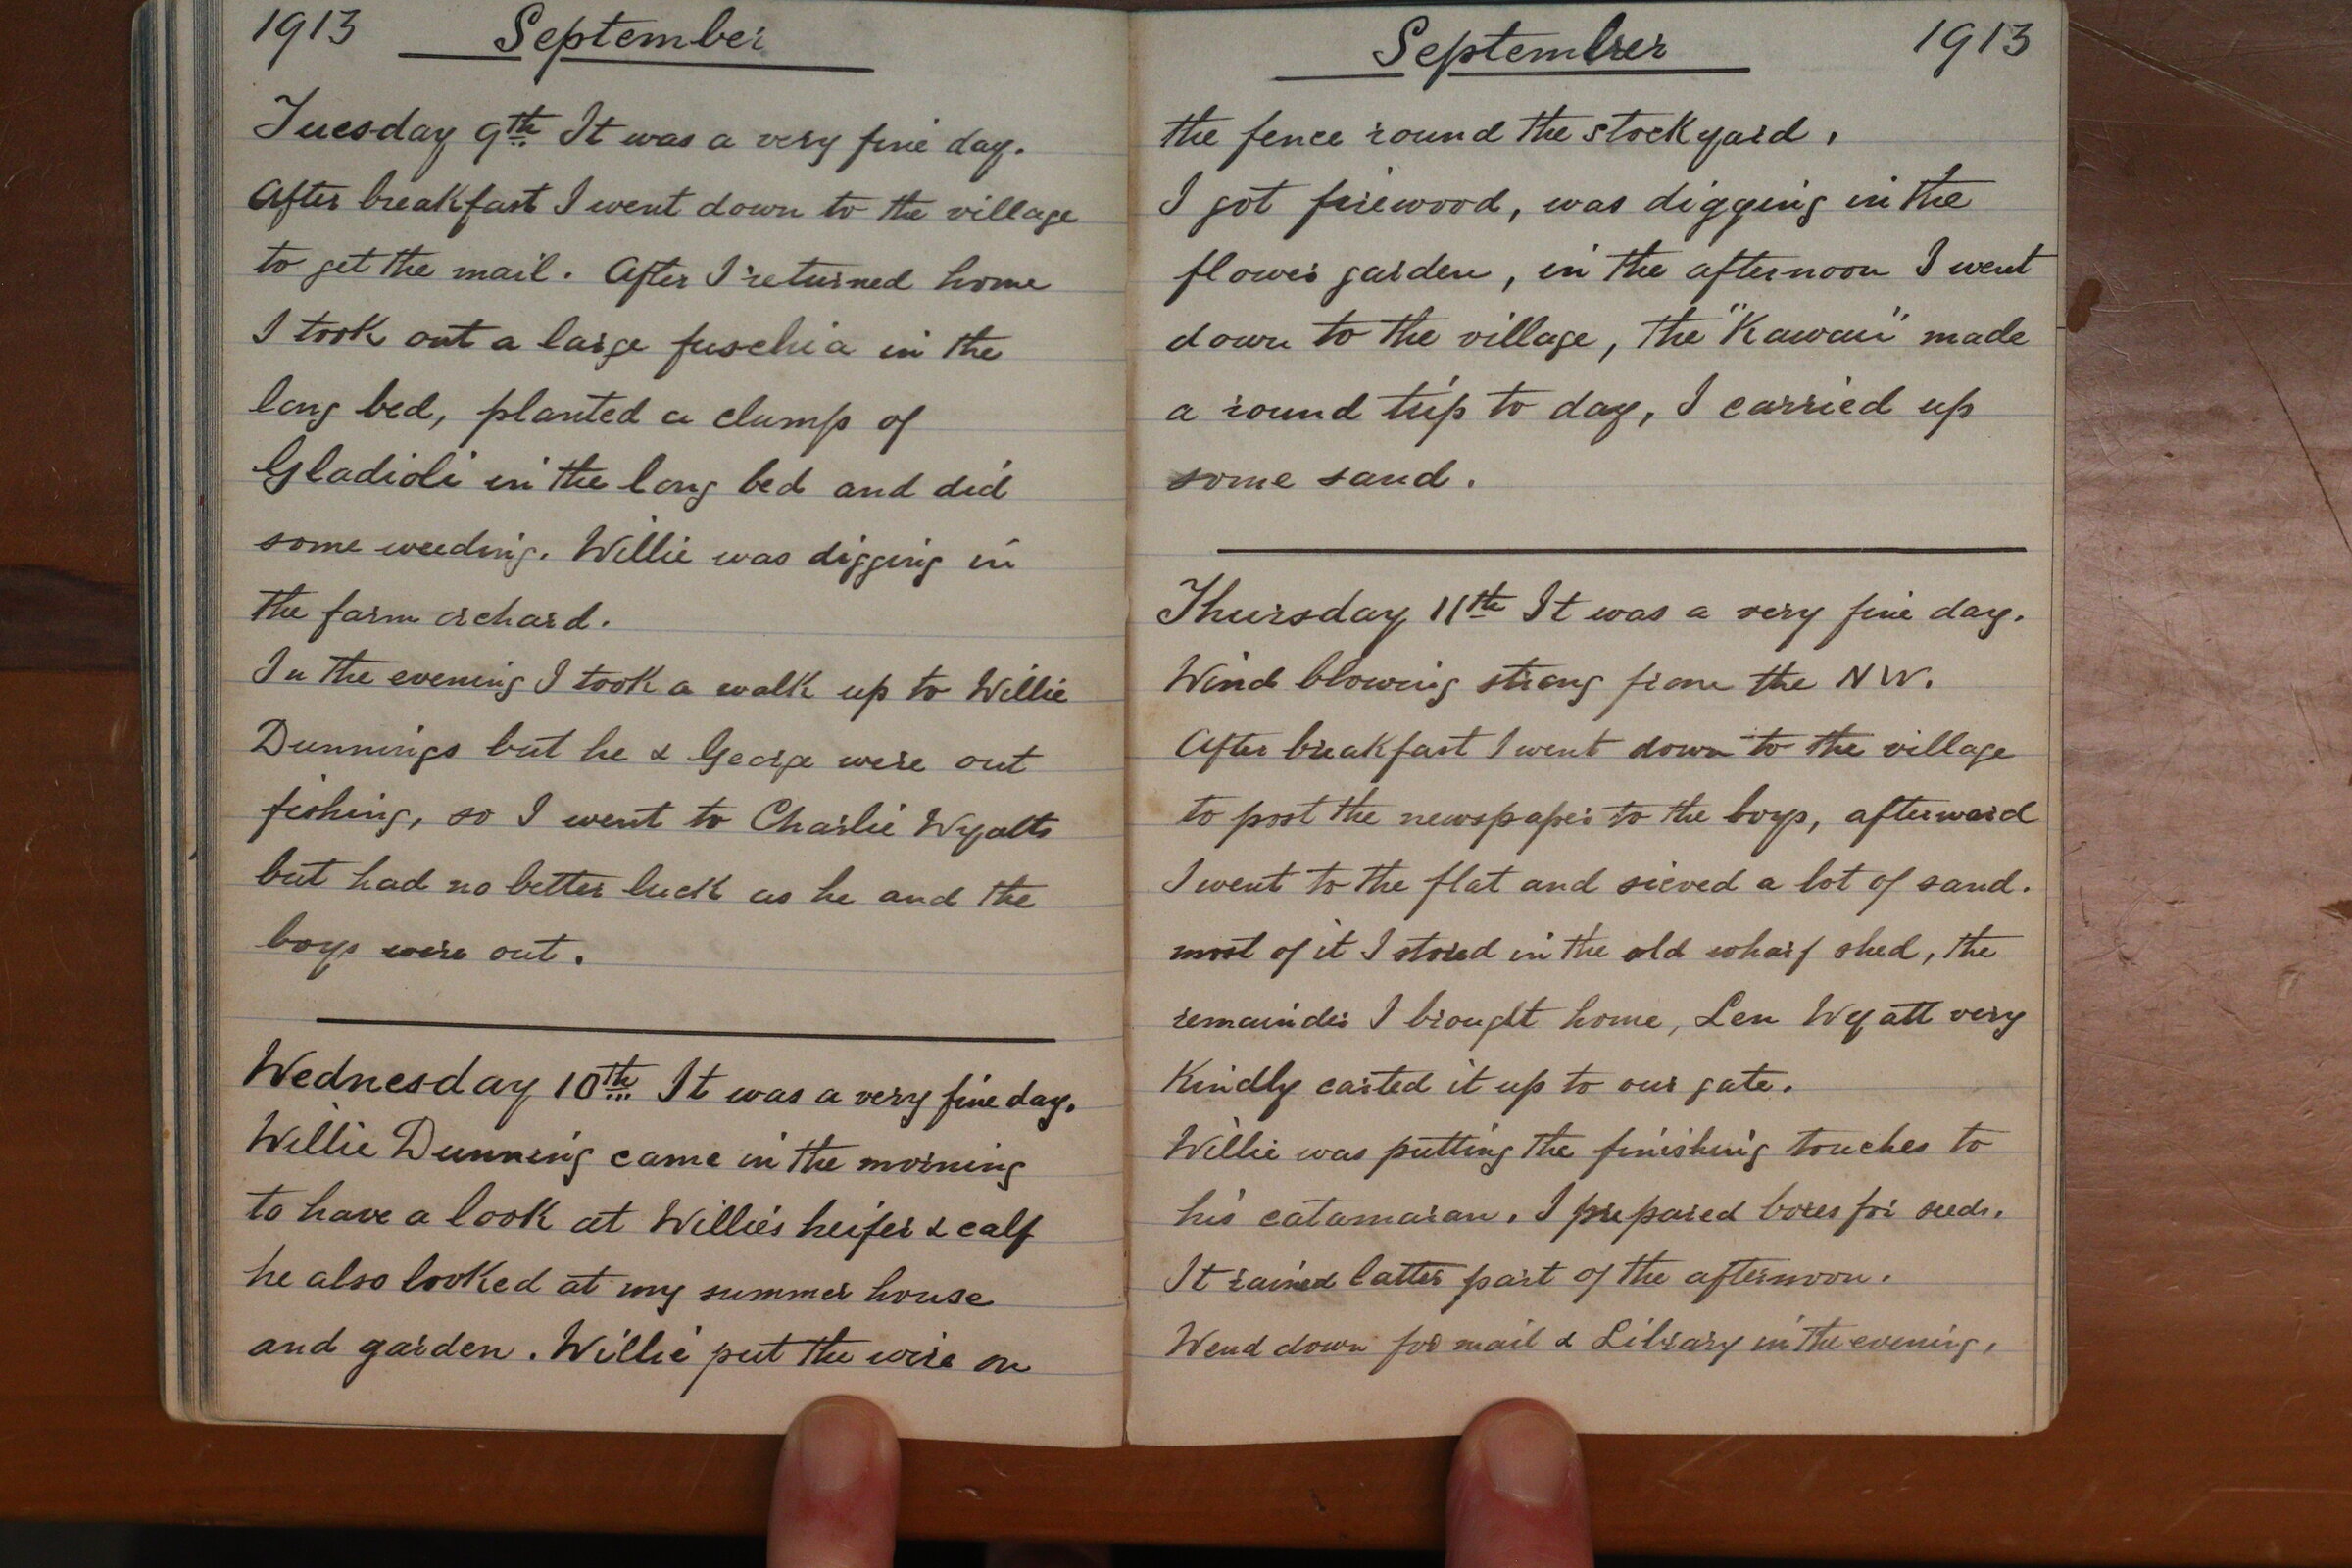 1913 September
Tuesday 9th It was a very fine day.
After breakfast I went down to the village
to get the mail. After I returned home
I took out a large fuschia in the
long bed, planted a clump of
Gladioli in the long bed and did
some weeding. Willie was digging in
the farm orchard.
In the evening I took a walk up to Willie
Dunnings but he & George were out
fishing, so I went to Charlie Wyatts
but had no better luck as he and the
boys were out.
Wednesday 10th It was a very fine day.
Willie Dunning came in the morning
to have a look at Willie's heifer & calf
he also looked at my summer house
and garden. Willie put the wire on
September 1913
the fence round the stockyard.
I got firewood, was digging in the
flower garden, in the afternoon I went
down to the village, the "Kawau" made
a round trip to day, I carried up
some sand.
Thursday 11th It was a very fine day.
Wind blowing strong from the NW.
After breakfast I went down to the village
to post the newspaper to the boys, afterward
I went to the flat and sieved a lot of sand.
most of it I stored in the old wharf shed, the
remainder I brought home, Len Wyatt very
Kindly carted it up to our gate.
Willie was putting the finishing touches to
his catamaran. I prepared boxes for seeds.
It rained latter part of the afternoon.
Wend down for mail & Library in the evening.